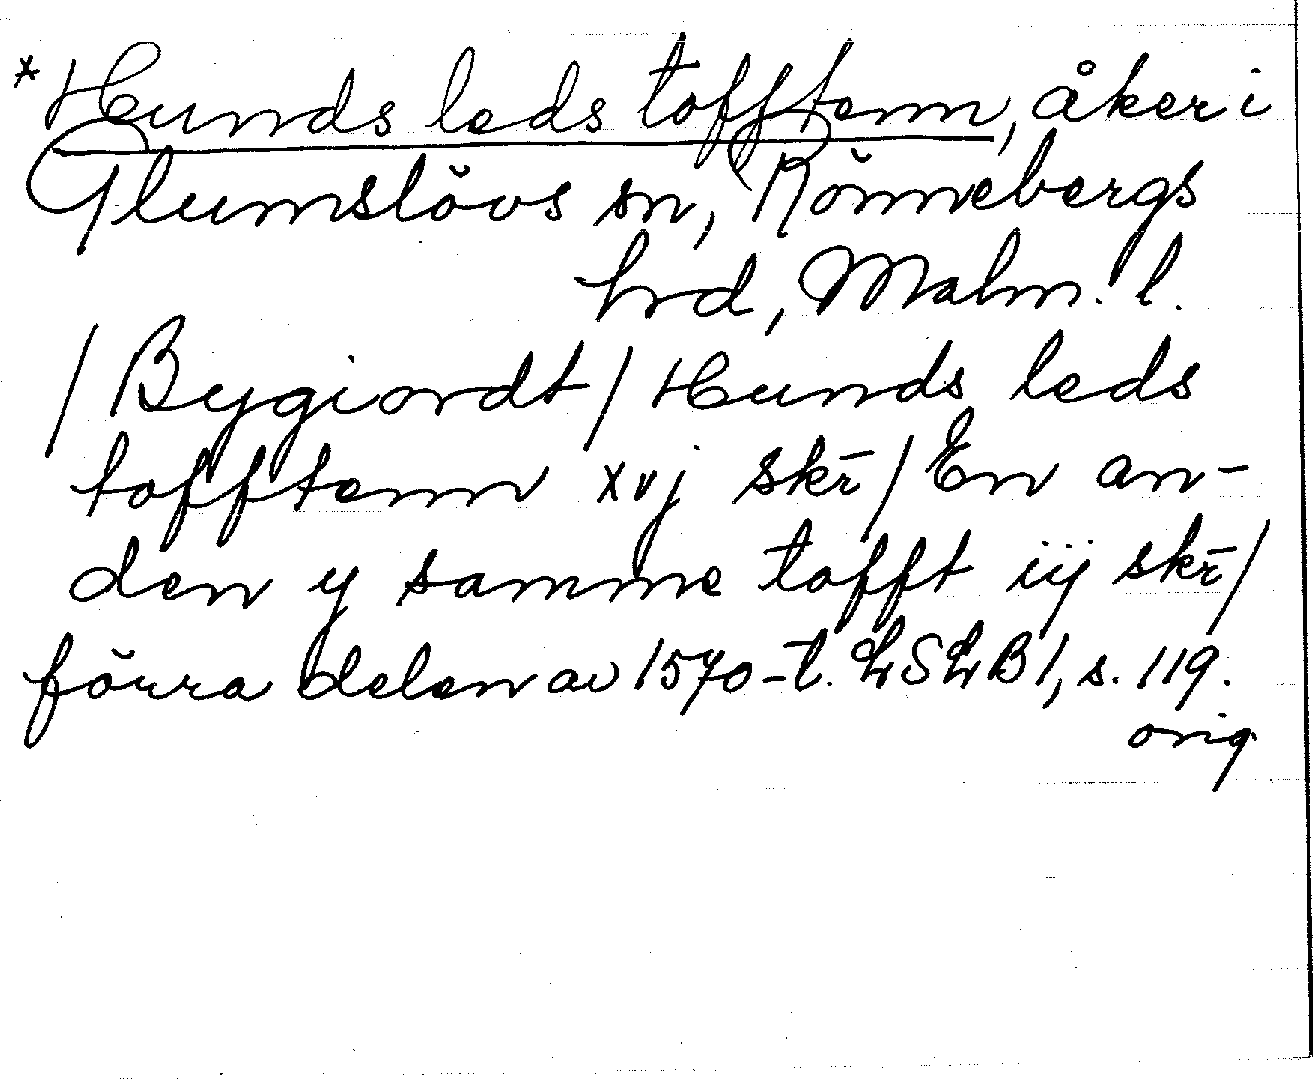 *Hunds leds tofftenn, åker i
Glumslövs sn, Rönnebergs
hrd, Malm. l.
/Bygiordt/ Hunds leds
tofftenn xvj skr̄/ En an-
den y samme tofft iij skr̄/
förra delen av 1570-t. LSLB 1, s. 119.
orig